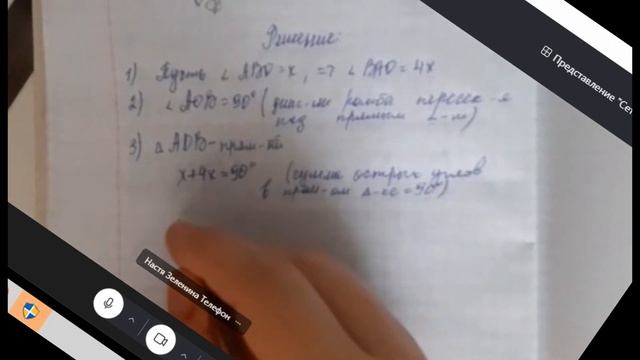 Решение:
1) Пусть ∠ ABO = x, => ∠ BAO = 4x
2) ∠ AOB = 90° (диаг-ли ромба пересек-я
под прямым ∠-м)
3) △ AOB - прям-ый
x + 4x = 90° (сумма острых углов
в прям-ом △-ке = 90°)
Представление "Сет
Настя Зеленина Телефон ...